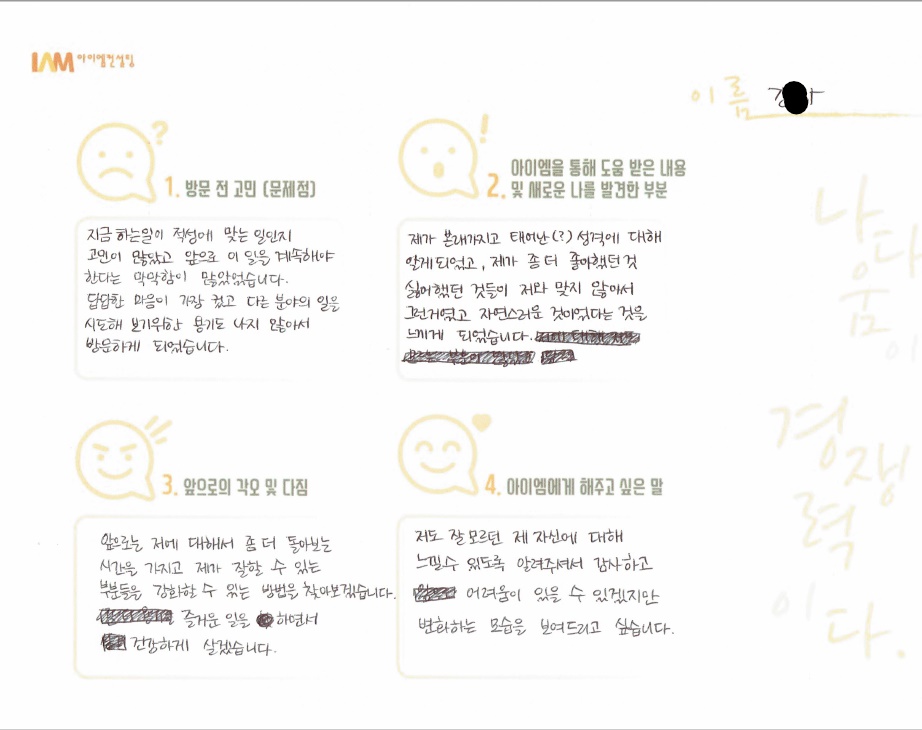 IAM 아이엠컨설팅
이름
1. 방문 전 고민 (문제점)
지금 하는일이 적성에 맞는 일인지
고민이 많았고 앞으로 이 일을 계속해야
한다는 막막함이 많았었습니다.
답답한 마음이 가장 컸고 다른 분야의 일을
시도해 보기위한 용기도 나지 않아서
방문하게 되었습니다.
2. 아이엠을 통해 도움 받은 내용
및 새로운 나를 발견한 부분
제가 본래가지고 태어난(?) 성격에 대해
알게되었고, 제가 좀 더 좋아했던 것
싫어했던 것들이 저와 맞지 않아서
그런거였고 자연스러운 것이었다는 것을
느끼게 되었습니다.
3. 앞으로의 각오 및 다짐
앞으로는 저에 대해서 좀 더 돌아보는
시간을 가지고 제가 잘할 수 있는
부분들을 강화할 수 있는 방법을 찾아보겠습니다.
즐거운 일을 하면서
건강하게 살겠습니다.
4. 아이엠에게 해주고 싶은 말
저도 잘 모르던 제 자신에 대해
느낄수 있도록 알려주셔서 감사하고
어려움이 있을 수 있겠지만
변화하는 모습을 보여드리고 싶습니다.
나다움이
경쟁력이다.